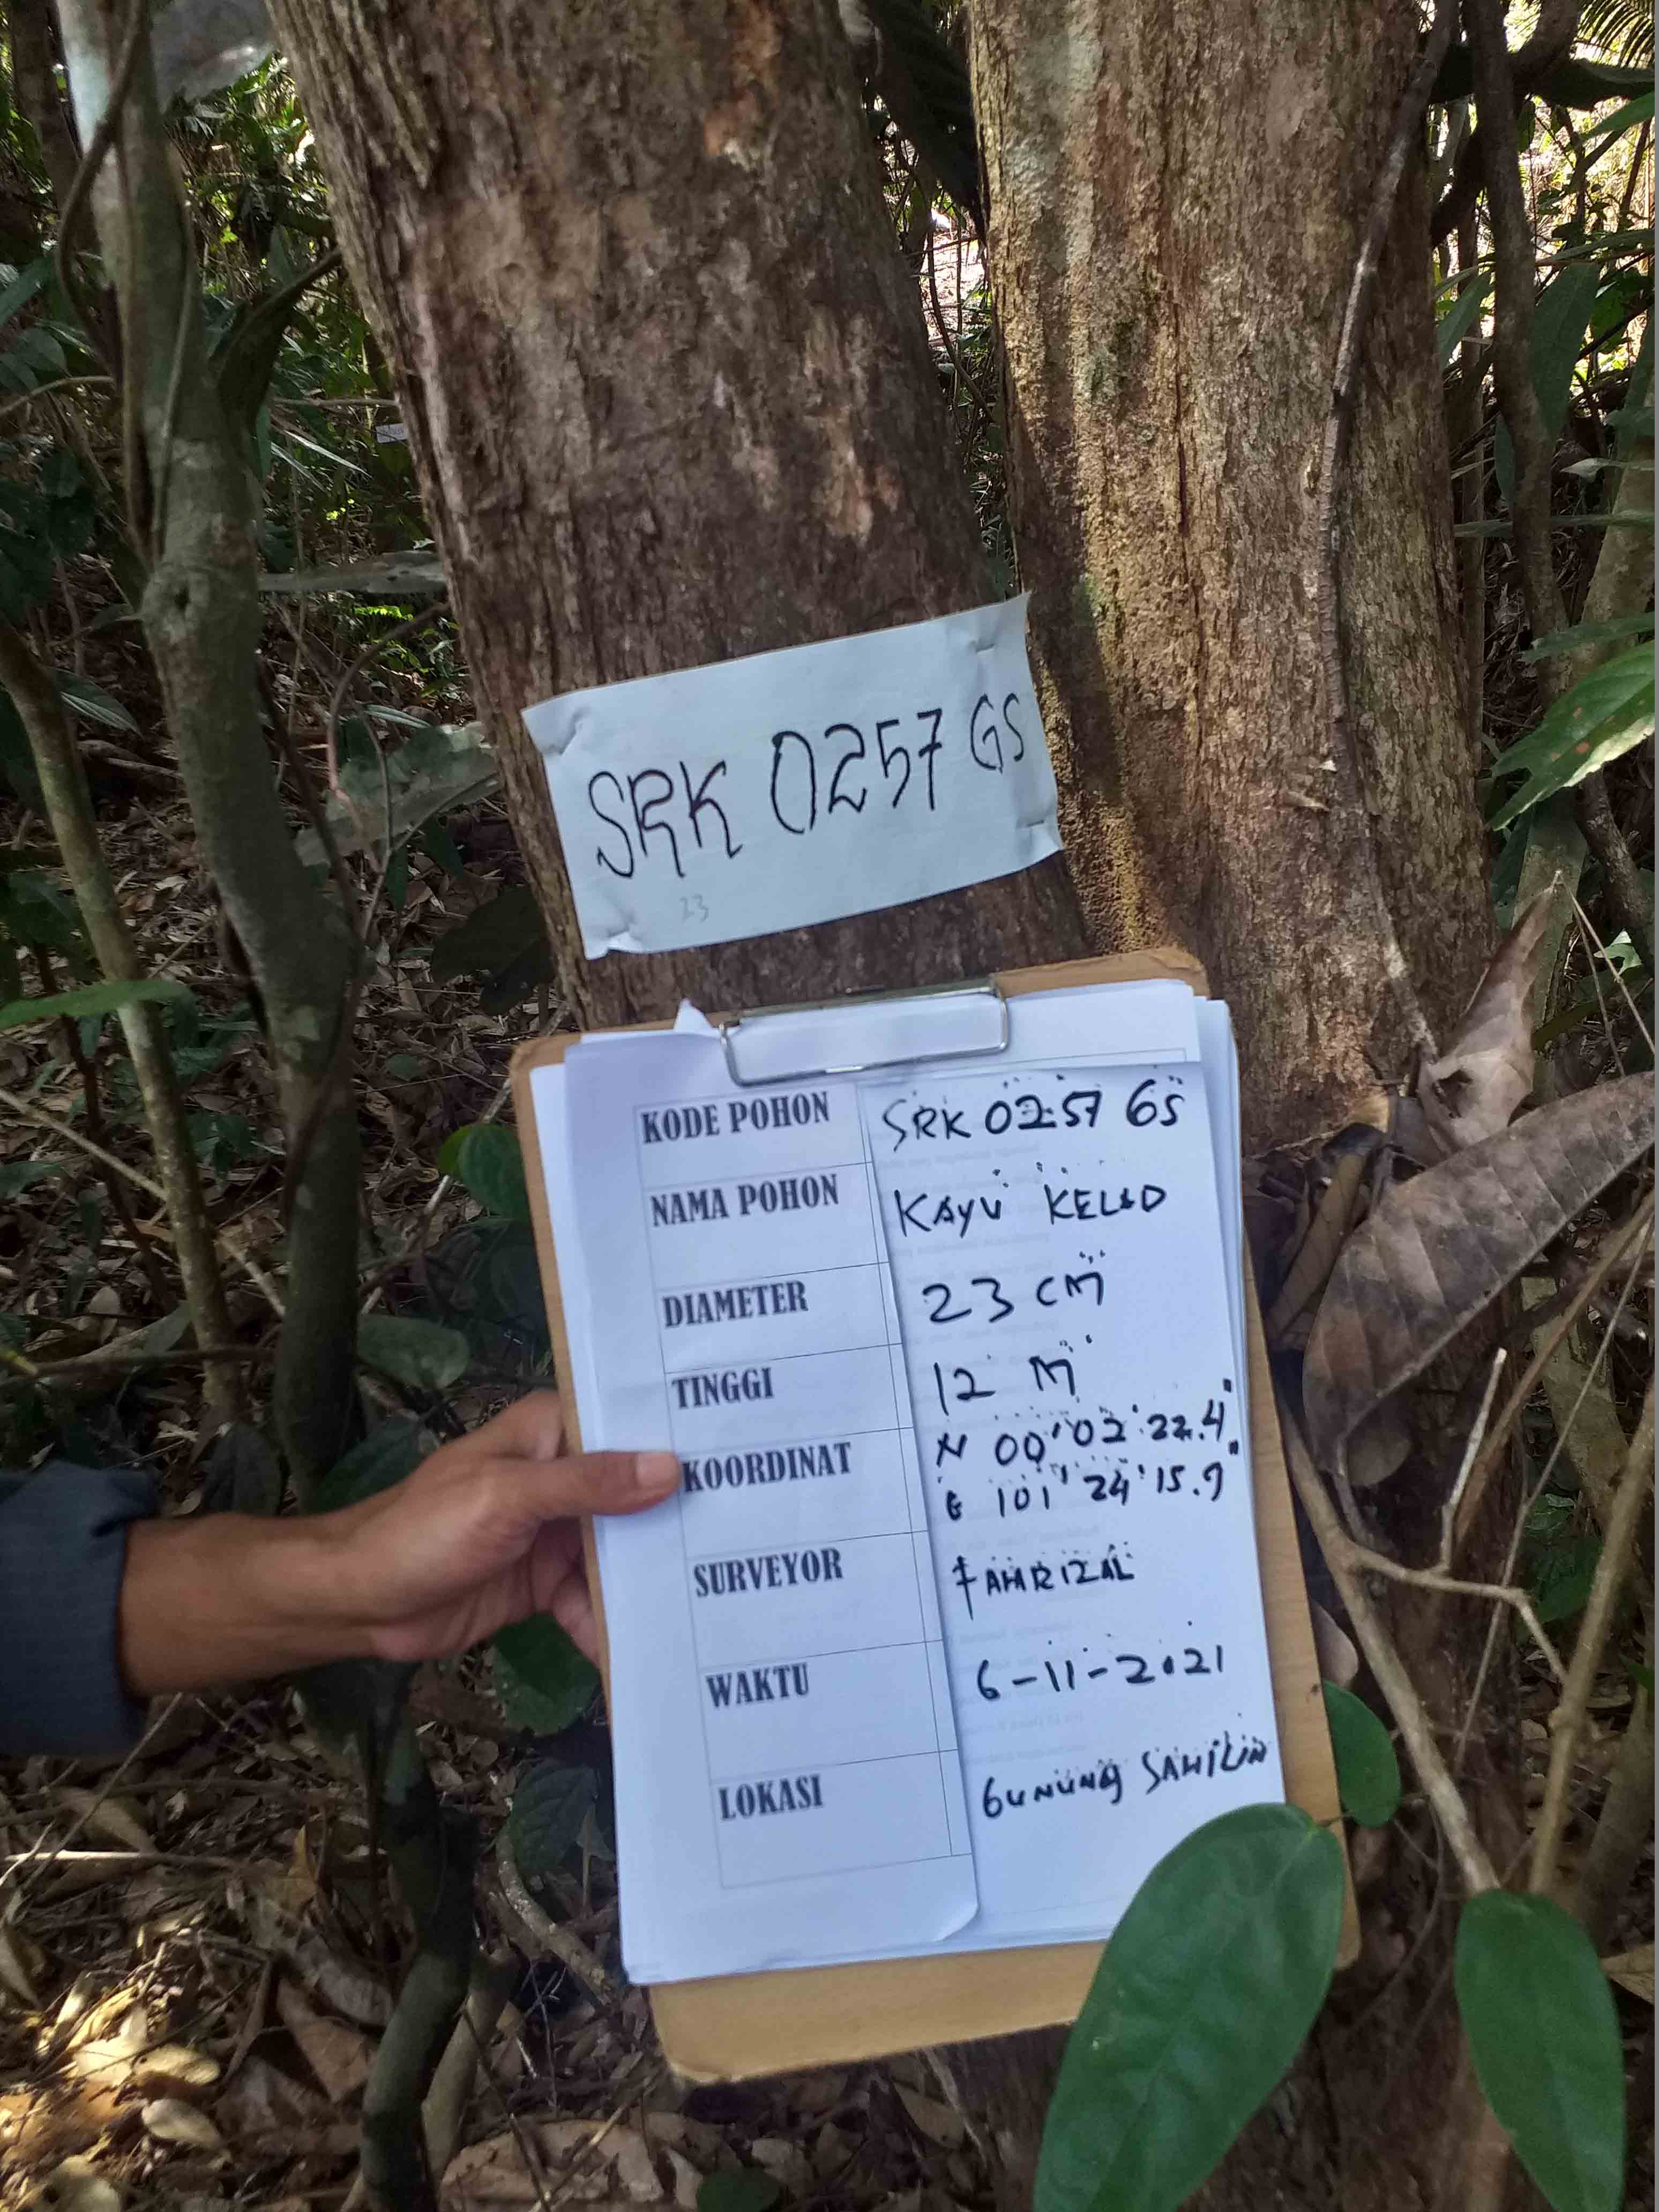 SRK 0257 GS
23
KODE POHON SRK 0257 GS
NAMA POHON KAYU
DIAMETER 23 CM
TINGGI 12 M
KOORDINAT N 00'02'22.4"
E 101'24'15.9"
SURVEYOR FAHRIZAL
WAKTU 6-11-2021
LOKASI GUNUNG SAHILIN